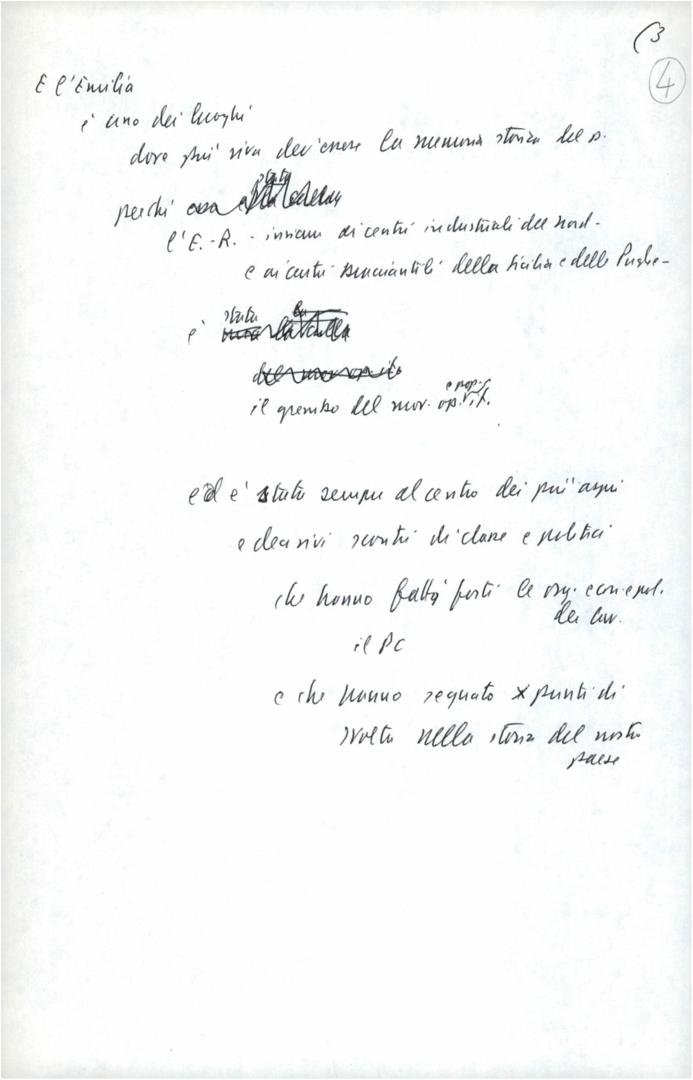 (3
4
E l'Emilia
è uno dei luoghi
dove più viva dev'essere la memoria storica del p.
perché
l'E.-R. - insieme ai centri industriali del nord -
e ai centri bracciantili della Sicilia e delle Puglie -
stata
è
il grembo del mov. op.
e pop.
ed e' stata sempre al centro dei più aspri
e decisivi scontri di classe e politici
che hanno fatto forti le org. econ. e pol.
dei lav.
il PC
e che hanno segnato x punti di
svolta nella storia del nostro
paese